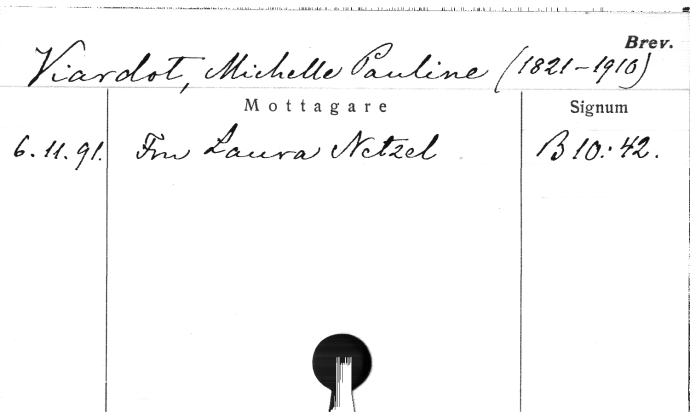 Brev.
Viardot, Michelle Pauline (1821-1910)
Mottagare Signum
6.11.91. Fru Laura Netzel B 10:42.